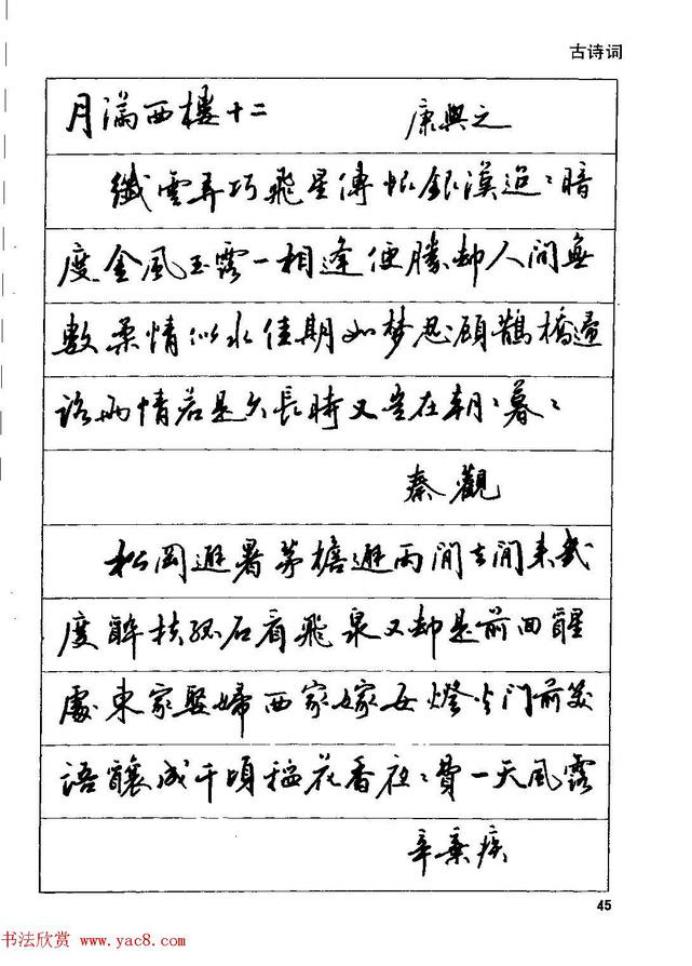 古诗词
月滿西樓十二 康與之
纖雲弄巧飛星傳恨銀漢迢〻暗
度金風玉露一相逢便勝却人間無
數柔情似水佳期如梦忍顧鵲橋歸
路兩情若是久長時又豈在朝〻暮〻
秦觀
松岡避暑茅檐避雨閒去閒來幾
度醉扶孤石看飛泉又却是前回醒
處東家娶婦西家嫁女燈火門前笑
語釀成千頃稻花香夜〻費一天風露
辛棄疾
45
书法欣赏 www.yac8.com